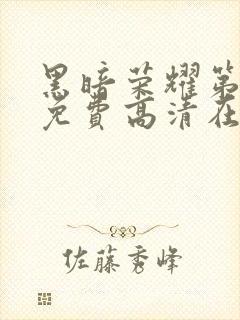 黑暗荣耀第
免费高清在
佐藤秀峰